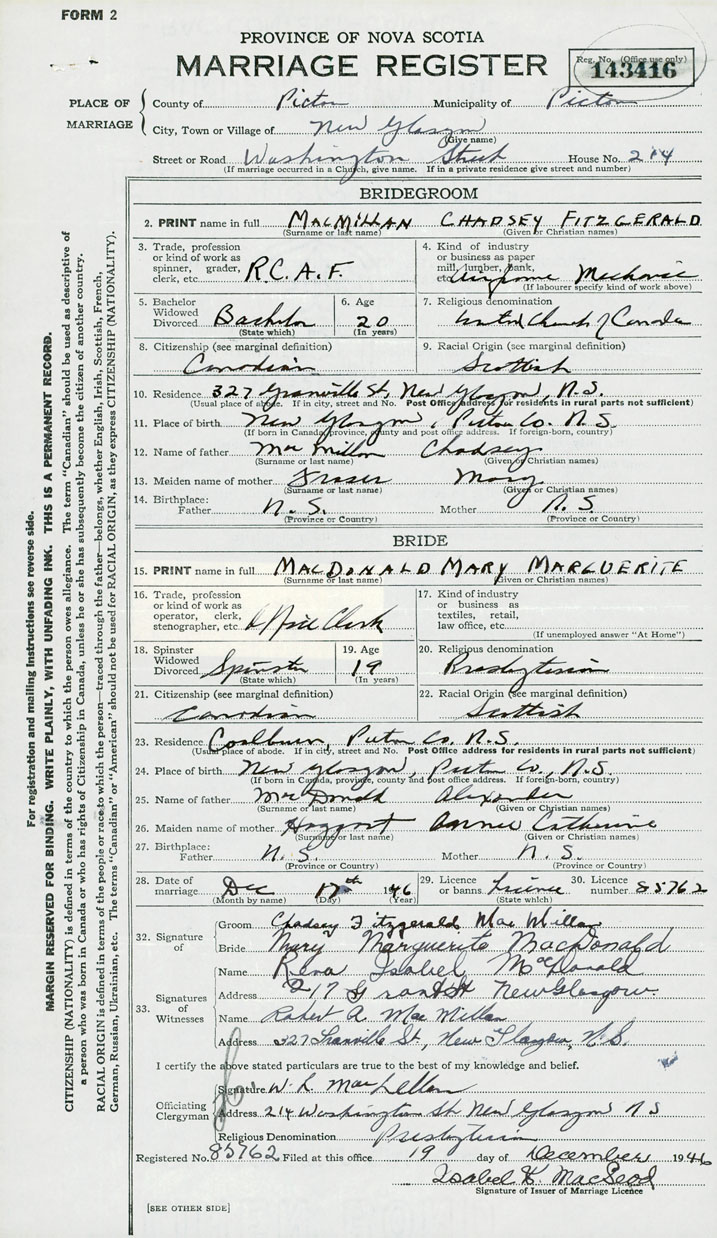 FORM 2
PROVINCE OF NOVA SCOTIA
MARRIAGE REGISTER
Reg. No. (Office use only)
143416
PLACE OF MARRIAGE
County of Pictou Municipality of Pictou
City, Town or Village of New Glasgow
(Give name)
Street or Road Washington Street House No. 214
(If marriage occurred in a Church, give name. If in a private residence give street and number)
BRIDEGROOM
2. PRINT name in full MACMILLAN CHADSEY FITZGERALD
(Surname or last name) (Given or Christian names)
3. Trade, profession or kind of work as spinner, grader, clerk, etc. R.C.A.F.
4. Kind of industry or business as paper mill, lumber, bank, etc. Mechanic
(If labourer specify kind of work above)
5. Bachelor Widowed Divorced Bachelor
(State which)
6. Age 20
(In years)
7. Religious denomination United Church of Canada
8. Citizenship (see marginal definition) Canadian
9. Racial Origin (see marginal definition) Scottish
10. Residence 327 Granville St, New Glasgow, N.S.
(Usual place of abode. If in city, street and No. Post Office address for residents in rural parts not sufficient)
11. Place of birth New Glasgow, Pictou Co. N.S.
(If born in Canada, province, county and post office address. If foreign-born, country)
12. Name of father MacMillan Chadsey
(Surname or last name) (Given or Christian names)
13. Maiden name of mother Fraser Mary
(Surname or last name) (Given or Christian names)
14. Birthplace: Father N.S. Mother N.S.
(Province or Country) (Province or Country)
BRIDE
15. PRINT name in full MACDONALD MARY MARGUERITE
(Surname or last name) (Given or Christian names)
16. Trade, profession or kind of work as operator, clerk, stenographer, etc. Office Clerk
17. Kind of industry or business as textiles, retail, law office, etc.
(If unemployed answer "At Home")
18. Spinster Widowed Divorced Spinster
(State which)
19. Age 19
(In years)
20. Religious denomination Presbyterian
21. Citizenship (see marginal definition) Canadian
22. Racial Origin (see marginal definition) Scottish
23. Residence Coalburn, Pictou Co. N.S.
(Usual place of abode. If in city, street and No. Post Office address for residents in rural parts not sufficient)
24. Place of birth New Glasgow, Pictou Co., N.S.
(If born in Canada, province, county and post office address. If foreign-born, country)
25. Name of father MacDonald Alexander
(Surname or last name) (Given or Christian names)
26. Maiden name of mother Annie Catherine
(Surname or last name) (Given or Christian names)
27. Birthplace: Father N.S. Mother N.S.
(Province or Country) (Province or Country)
28. Date of marriage Dec 17th 1946
(Month by name) (Day) (Year)
29. Licence or banns Licence
(State which)
30. Licence number 85762
32. Signature of
Groom Chadsey Fitzgerald MacMillan
Bride Mary Marguerite MacDonald
33. Signatures of Witnesses
Name Rena Isabel MacDonald
Address 217 Grant St New Glasgow.
Name Robert A. MacMillan
Address 327 Granville St, New Glasgow, N.S.
I certify the above stated particulars are true to the best of my knowledge and belief.
Officiating Clergyman
Signature W. L. MacLellan
Address 214 Washington St. New Glasgow N S
Religious Denomination Presbyterian
Registered No. 85762 Filed at this office 19 day of December 1946
Isabel K. MacLeod
Signature of Issuer of Marriage Licence
[SEE OTHER SIDE]
For registration and mailing instructions see reverse side.
MARGIN RESERVED FOR BINDING. WRITE PLAINLY, WITH UNFADING INK. THIS IS A PERMANENT RECORD.
CITIZENSHIP (NATIONALITY) is defined in terms of the country to which the person owes allegiance. The term "Canadian" should be used as descriptive of
a person who was born in Canada or who has rights of Citizenship in Canada, unless he or she has subsequently become the citizen of another country.
RACIAL ORIGIN is defined in terms of the people or race to which the person—traced through the father—belongs, whether English, Irish, Scottish, French,
German, Russian, Ukrainian, etc. The terms "Canadian" or "American" should not be used for RACIAL ORIGIN, as they express CITIZENSHIP (NATIONALITY).